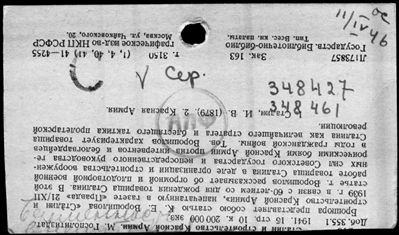 Сталин и строительство Красной Армии. М., Госполитиздат,
1941. 15 стр. 10 к. 20 000 экз.
Брошюра представляет собою статью К. Е. Ворошилова «Сталин и
строительство Красной Армии», напечатанную в газете «Правда» 21/XII
1939 г. в связи с 60-летием со дня рождения товарища Сталина. В этой
статье т. Ворошилов рассказывает об огромной и плодотворной военной
работе товарища Сталина в деле организации и строительства вооружен-
ных сил Советского государства и непосредственного руководства ге-
роическими боями Красной Армии против интервентов и белогвардейцев
в годы гражданской войны. Тов. Ворошилов характеризует товарища
Сталина как величайшего стратега и блестящего тактика пролетарской
революции.
Сталин, И. В. (1879). 2. Красная Армия.
348461
348427
V Сер.
Л173857 Зак. 163 т. 3150 (1, 4, 40, 41) 41—4255
Государств. Библиотечно-библиографическое изд-во НКП РСФСР
Тип. Всес. кн. палаты. Москва, ул. Чайковского, 20.
11/IV 46